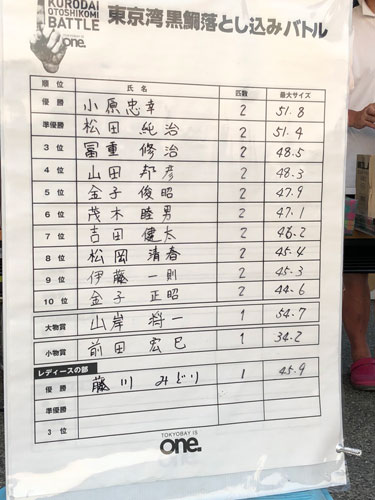 KURODAI
OTOSHIKOMI
BATTLE
TOKYOBAY IS
one.
東京湾黒鯛落とし込みバトル
順位 氏名 匹数 最大サイズ
優勝 小原忠幸 2 51.8
準優勝 松田純治 2 51.4
3位 冨重修治 2 48.5
4位 山田邦彦 2 48.3
5位 金子俊昭 2 47.9
6位 茂木睦男 2 47.1
7位 吉田健太 2 46.2
8位 松岡清春 2 45.4
9位 伊藤一則 2 45.3
10位 金子正昭 2 44.6
大物賞 山岸将一 1 54.7
小物賞 前田宏巳 1 34.2
レディースの部
優勝 藤川みどり 1 45.9
準優勝
3位
TOKYOBAY IS
one.